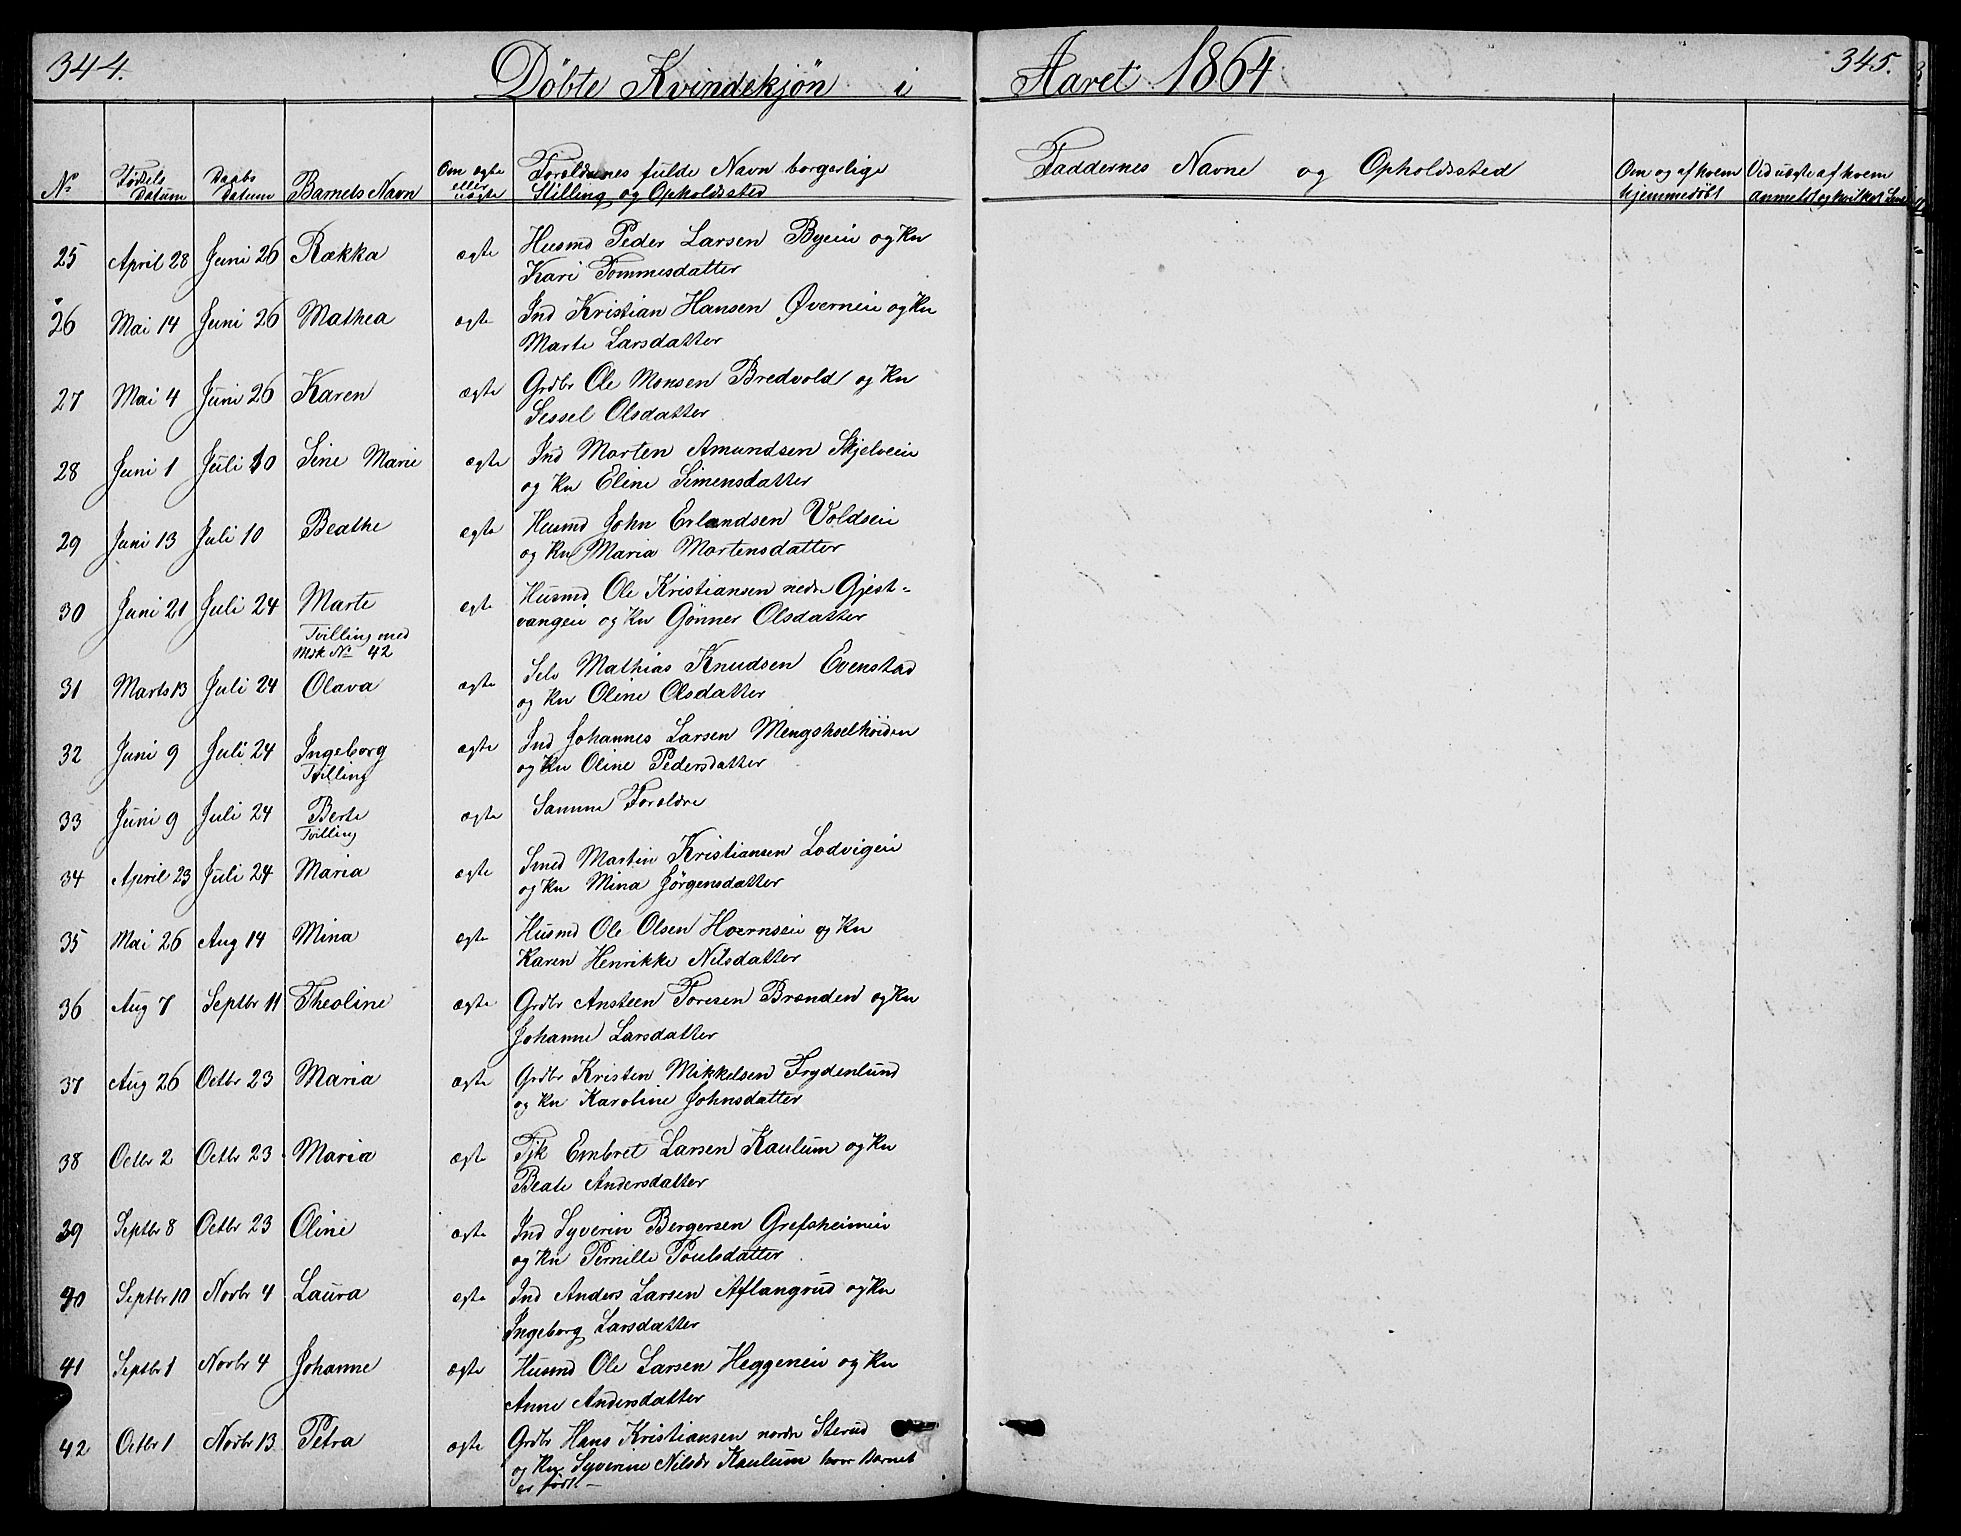 344.
Døbte Kvindekjøn i
Aaret 1864
345.
No
Fødsels Datum
Daabs Datum
Barnets Navn
Om ægte eller uægte
Forældrenes fulde Navn borgerlige Stilling og Opholdssted
Faddernes Navne og Opholdssted
Om og af hvem hjemmedøbt
Ved uægte af hvem anmeldt og hvilket
25 April 28 Juni 26 Rækka ægte Husmd Peder Larsen Byeiei og Kn
Kari Tommesdatter
26 Mai 14 Juni 26 Mathea ægte Ind Kristian Hansen Øverneiei og Kn
Marte Larsdatter
27 Mai 4 Juni 26 Karen ægte Grdbr Ole Monsen Bredvold og Kn
Sessel Olsdatter
28 Juni 1 Juli 10 Sine Marie ægte Ind Morten Amundsen Skjelveiei
og Kn Eline Simensdatter
29 Juni 13 Juli 10 Beathe ægte Husmd John Erlandsen Voldseiei
og Kn Maria Mortensdatter
30 Juni 21 Juli 24 Marte ægte Husmd Ole Kristiansen nedre Gjest-
Tvilling med vangeiei og Kn Gønner Olsdatter
Msk No 42
31 Marts 13 Juli 24 Olava ægte Selv Mathias Knudsen Evenstad
og Kn Oline Olsdatter
32 Juni 9 Juli 24 Ingeborg ægte Ind Johannes Larsen Mengshoelhøiden
Tvilling og Kn Oline Pedersdatter
33 Juni 9 Juli 24 Berte ægte Samme Forældre
Tvilling
34 April 23 Juli 24 Maria ægte Smed Martin Kristiansen Lodvigeiei
og Kn Mina Jørgensdatter
35 Mai 26 Aug 14 Mina ægte Husmd Ole Olsen Hoernseiei og Kn
Karen Henrikke Nilsdatter
36 Aug 7 Septbr 11 Theoline ægte Grdbr Ansteen Toresen Brænden og Kn
Johanne Larsdatter
37 Aug 26 Octbr 23 Maria ægte Grdbr Kristen Mikkelsen Frydenlund
og Kn Karoline Johnsdatter
38 Octbr 2 Octbr 23 Maria ægte Tjk Embret Larsen Kaulum og Kn
Beate Andersdatter
39 Septbr 8 Octbr 23 Oline ægte Ind Syverin Bergersen Grefsheimeiei
og Kn Pernille Poulsdatter
40 Septbr 10 Novbr 4 Laura ægte Ind Anders Larsen Aflangrud og Kn
Ingeborg Larsdatter
41 Septbr 1 Novbr 4 Johanne ægte Husmd Ole Larsen Heggeneiei og Kn
Anne Andersdatter
42 Octbr 1 Novbr 13 Petra ægte Grdbr Hans Kristiansen nordre Sterud
og Kn Syverine Nilsdr Kaulum hvor Barnet
er født –